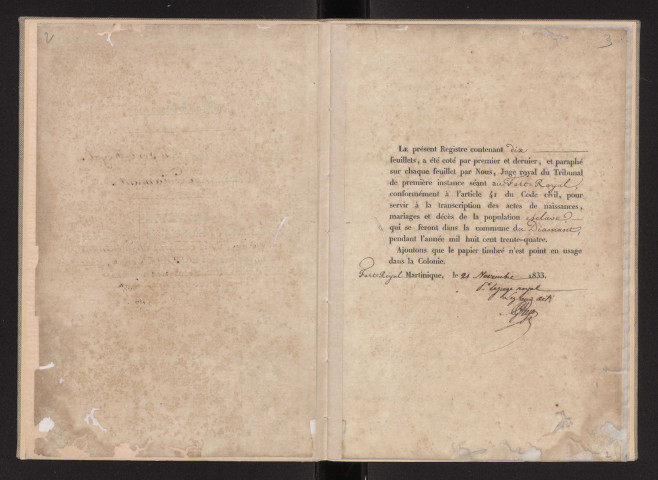 2
3
Le présent Registre contenant dix
feuillets, a été coté par premier et dernier, et paraphé
sur chaque feuillet par Nous, Juge royal du Tribunal
de première instance séant au Fort-Royal,
conformément à l'article 41 du Code civil, pour
servir à la transcription des actes de naissances,
mariages et décès de la population esclave
qui se feront dans la commune du Diamant,
pendant l'année mil huit cent trente-quatre.
Ajoutons que le papier timbré n'est point en usage
dans la Colonie.
Fort-Royal Martinique, le 21 Novembre 1833.
royal